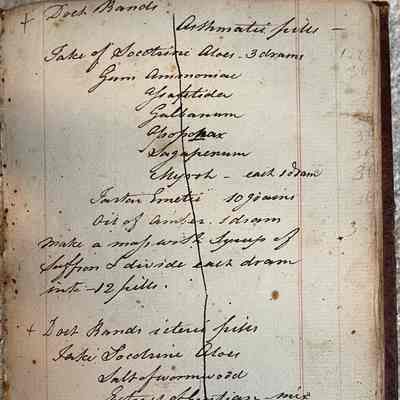 + Doct Rands
Asthmatic pills —
Take of Socotrine Aloes - 3 drams
Gum Ammoniac
Assafetida
Galbanum
Opoponax
Sagapenum
Myrrh - each 1 dram
Tartar Emetic 10 grains
Oil of Amber. 1 dram
make a mass with Syrup of
Saffron & divide each dram
into -12 pills.
+ Doct Rands icteric pills
Take Socotrine Aloes
Salt of wormwood
mix